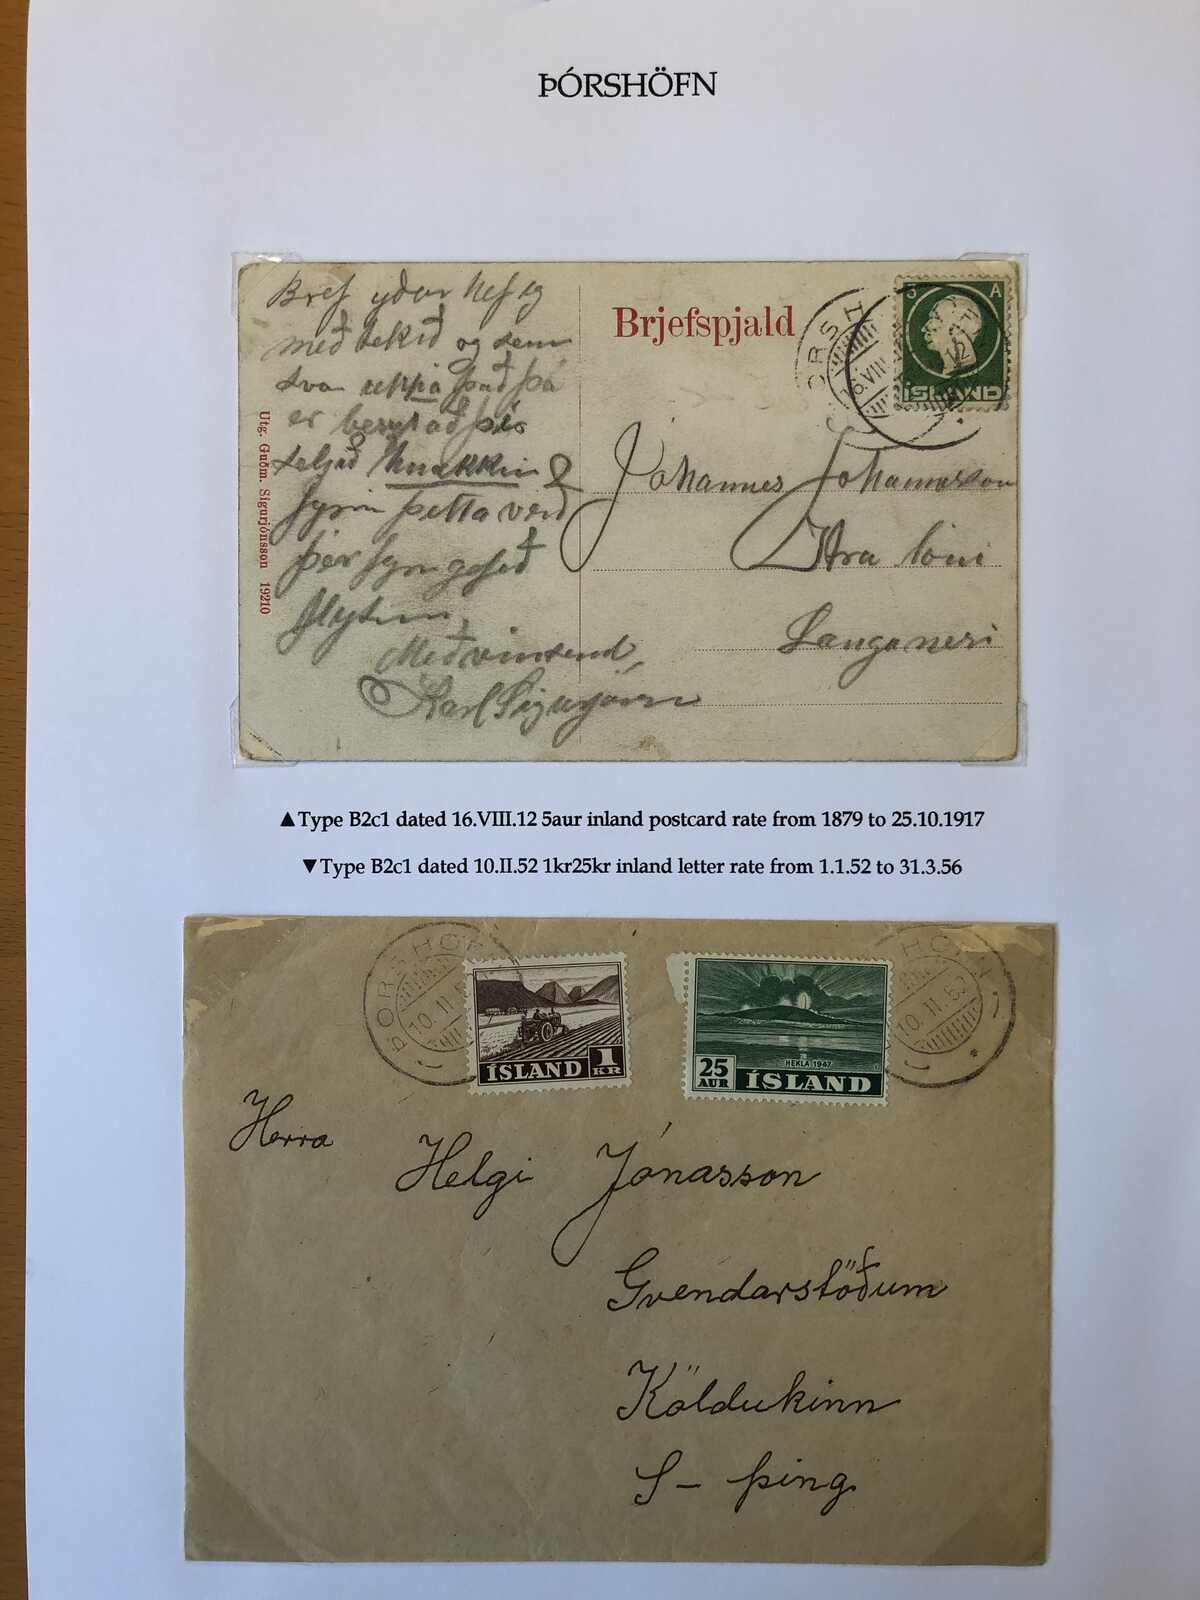 ÞÓRSHÖFN
Bref yðar hef eg
með tekið og sem
svar uppá það þá
er
seljið knakkin
fyrir þetta verð
þer
Með vinsemd,
Karl Sigurjónsson
Utg. Guðm. Sigurjónsson 19210
Brjefspjald
ORSH
16.VIII
12
5 A
ÍSLAND
Jóhannes Jóhannesson
Ytra loni
Langanesi
▲Type B2c1 dated 16.VIII.12 5aur inland postcard rate from 1879 to 25.10.1917
▼Type B2c1 dated 10.II.52 1kr25kr inland letter rate from 1.1.52 to 31.3.56
ÞORSHÖF
10.II.5
ÍSLAND 1 KR
25 AUR
HEKLA 1947
ÍSLAND
HÖFN
10.II.52
Herra
Helgi Jónasson
Gvendarstöðum
Köldukinn
S- Þing.